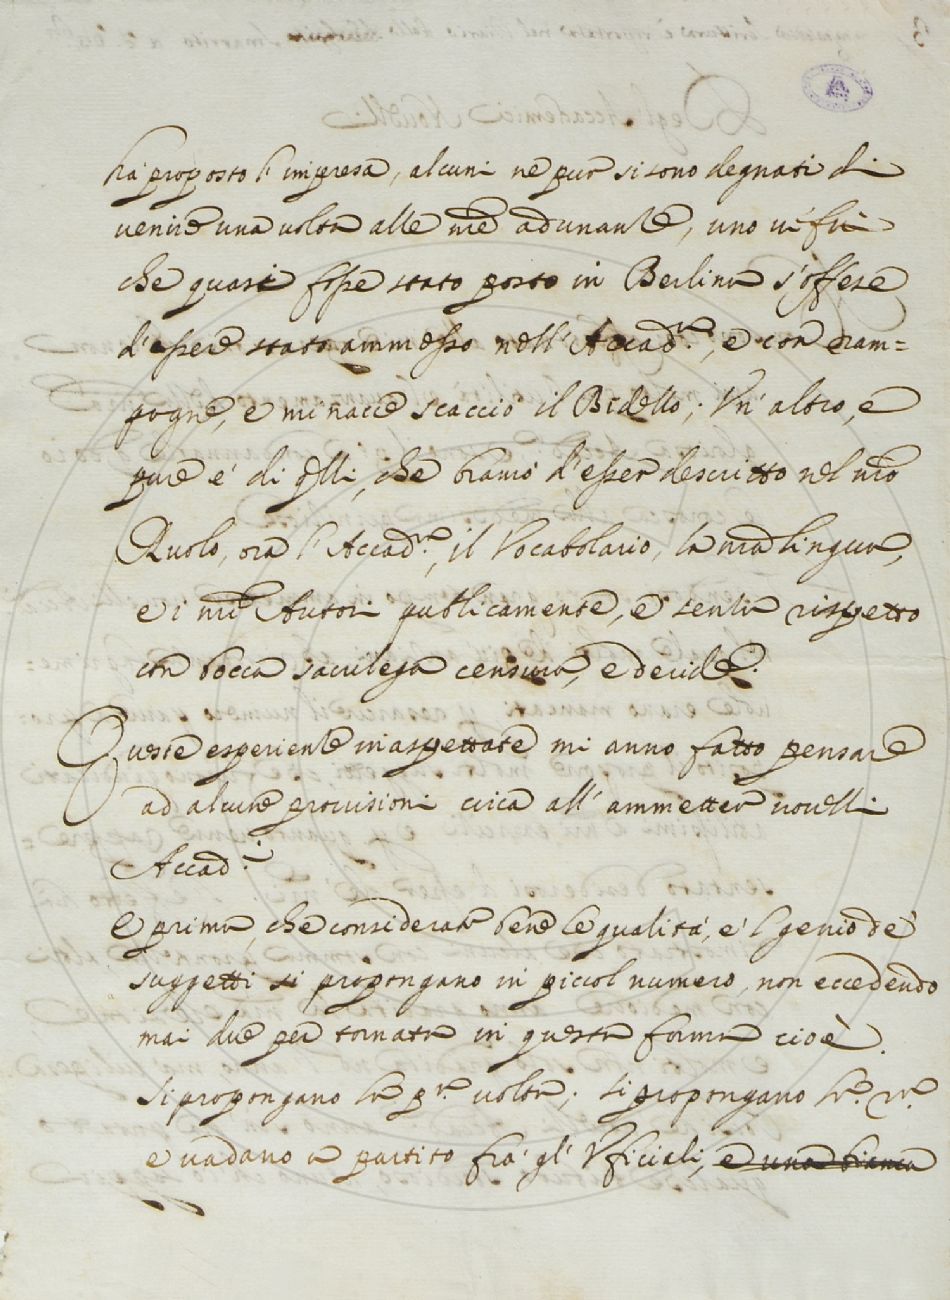 ha proposto l'impresa, alcuni ne pur si sono degnati di
venire una volta alle nrē adunanze, uno vi fu
che quasi fosse stato posto in Berlina s'offese
d'essere stato ammesso nell'Accad.ª, e con ram=
pogne, e minacce scacciò il Bidello; Un'altro, e
pure è di qlli, che bramò d'esser descritto nel nrō
Ruolo, ora l'Accad.ª, il Vocabolario, la nrā lingua,
e i nrī Autori publicamente, e senza rispetto
con bocca sacrilega censura, e deride.
Queste esperienze inaspettate mi anno fatto pensare
ad alcune provisioni circa all'ammetter novelli
Accad.i
E prima, che considerata bene le qualità, e 'l genio de'
suggetti si propongano in piccol numero, non eccedendo
mai due per tornata in questa forma cioè.
Si propongano la p.ª volta; si propongano la
e vadano a partito fra gl'Uficiali, e una bianca